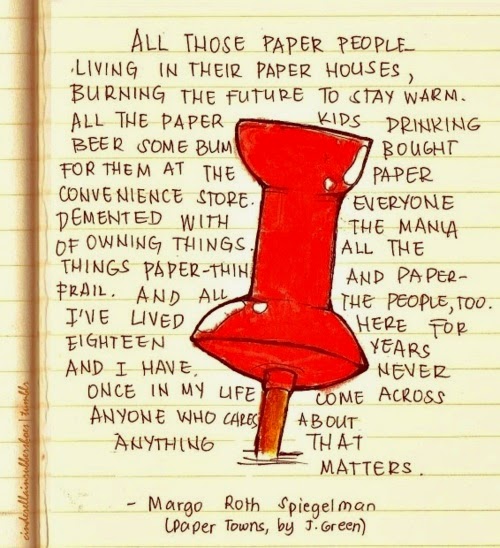 ALL THOSE PAPER PEOPLE
LIVING IN THEIR PAPER HOUSES,
BURNING THE FUTURE TO STAY WARM.
ALL THE PAPER KIDS DRINKING
BEER SOME BUM BOUGHT
FOR THEM AT THE PAPER
CONVENIENCE STORE. EVERYONE
DEMENTED WITH THE MANIA
OF OWNING THINGS. ALL THE
THINGS PAPER-THIN AND PAPER-
FRAIL. AND ALL THE PEOPLE, TOO.
I'VE LIVED HERE FOR
EIGHTEEN YEARS
AND I HAVE. NEVER
ONCE IN MY LIFE COME ACROSS
ANYONE WHO CARES ABOUT
ANYTHING THAT
MATTERS.
- Margo Roth Spiegelman
(Paper Towns, by J. Green)